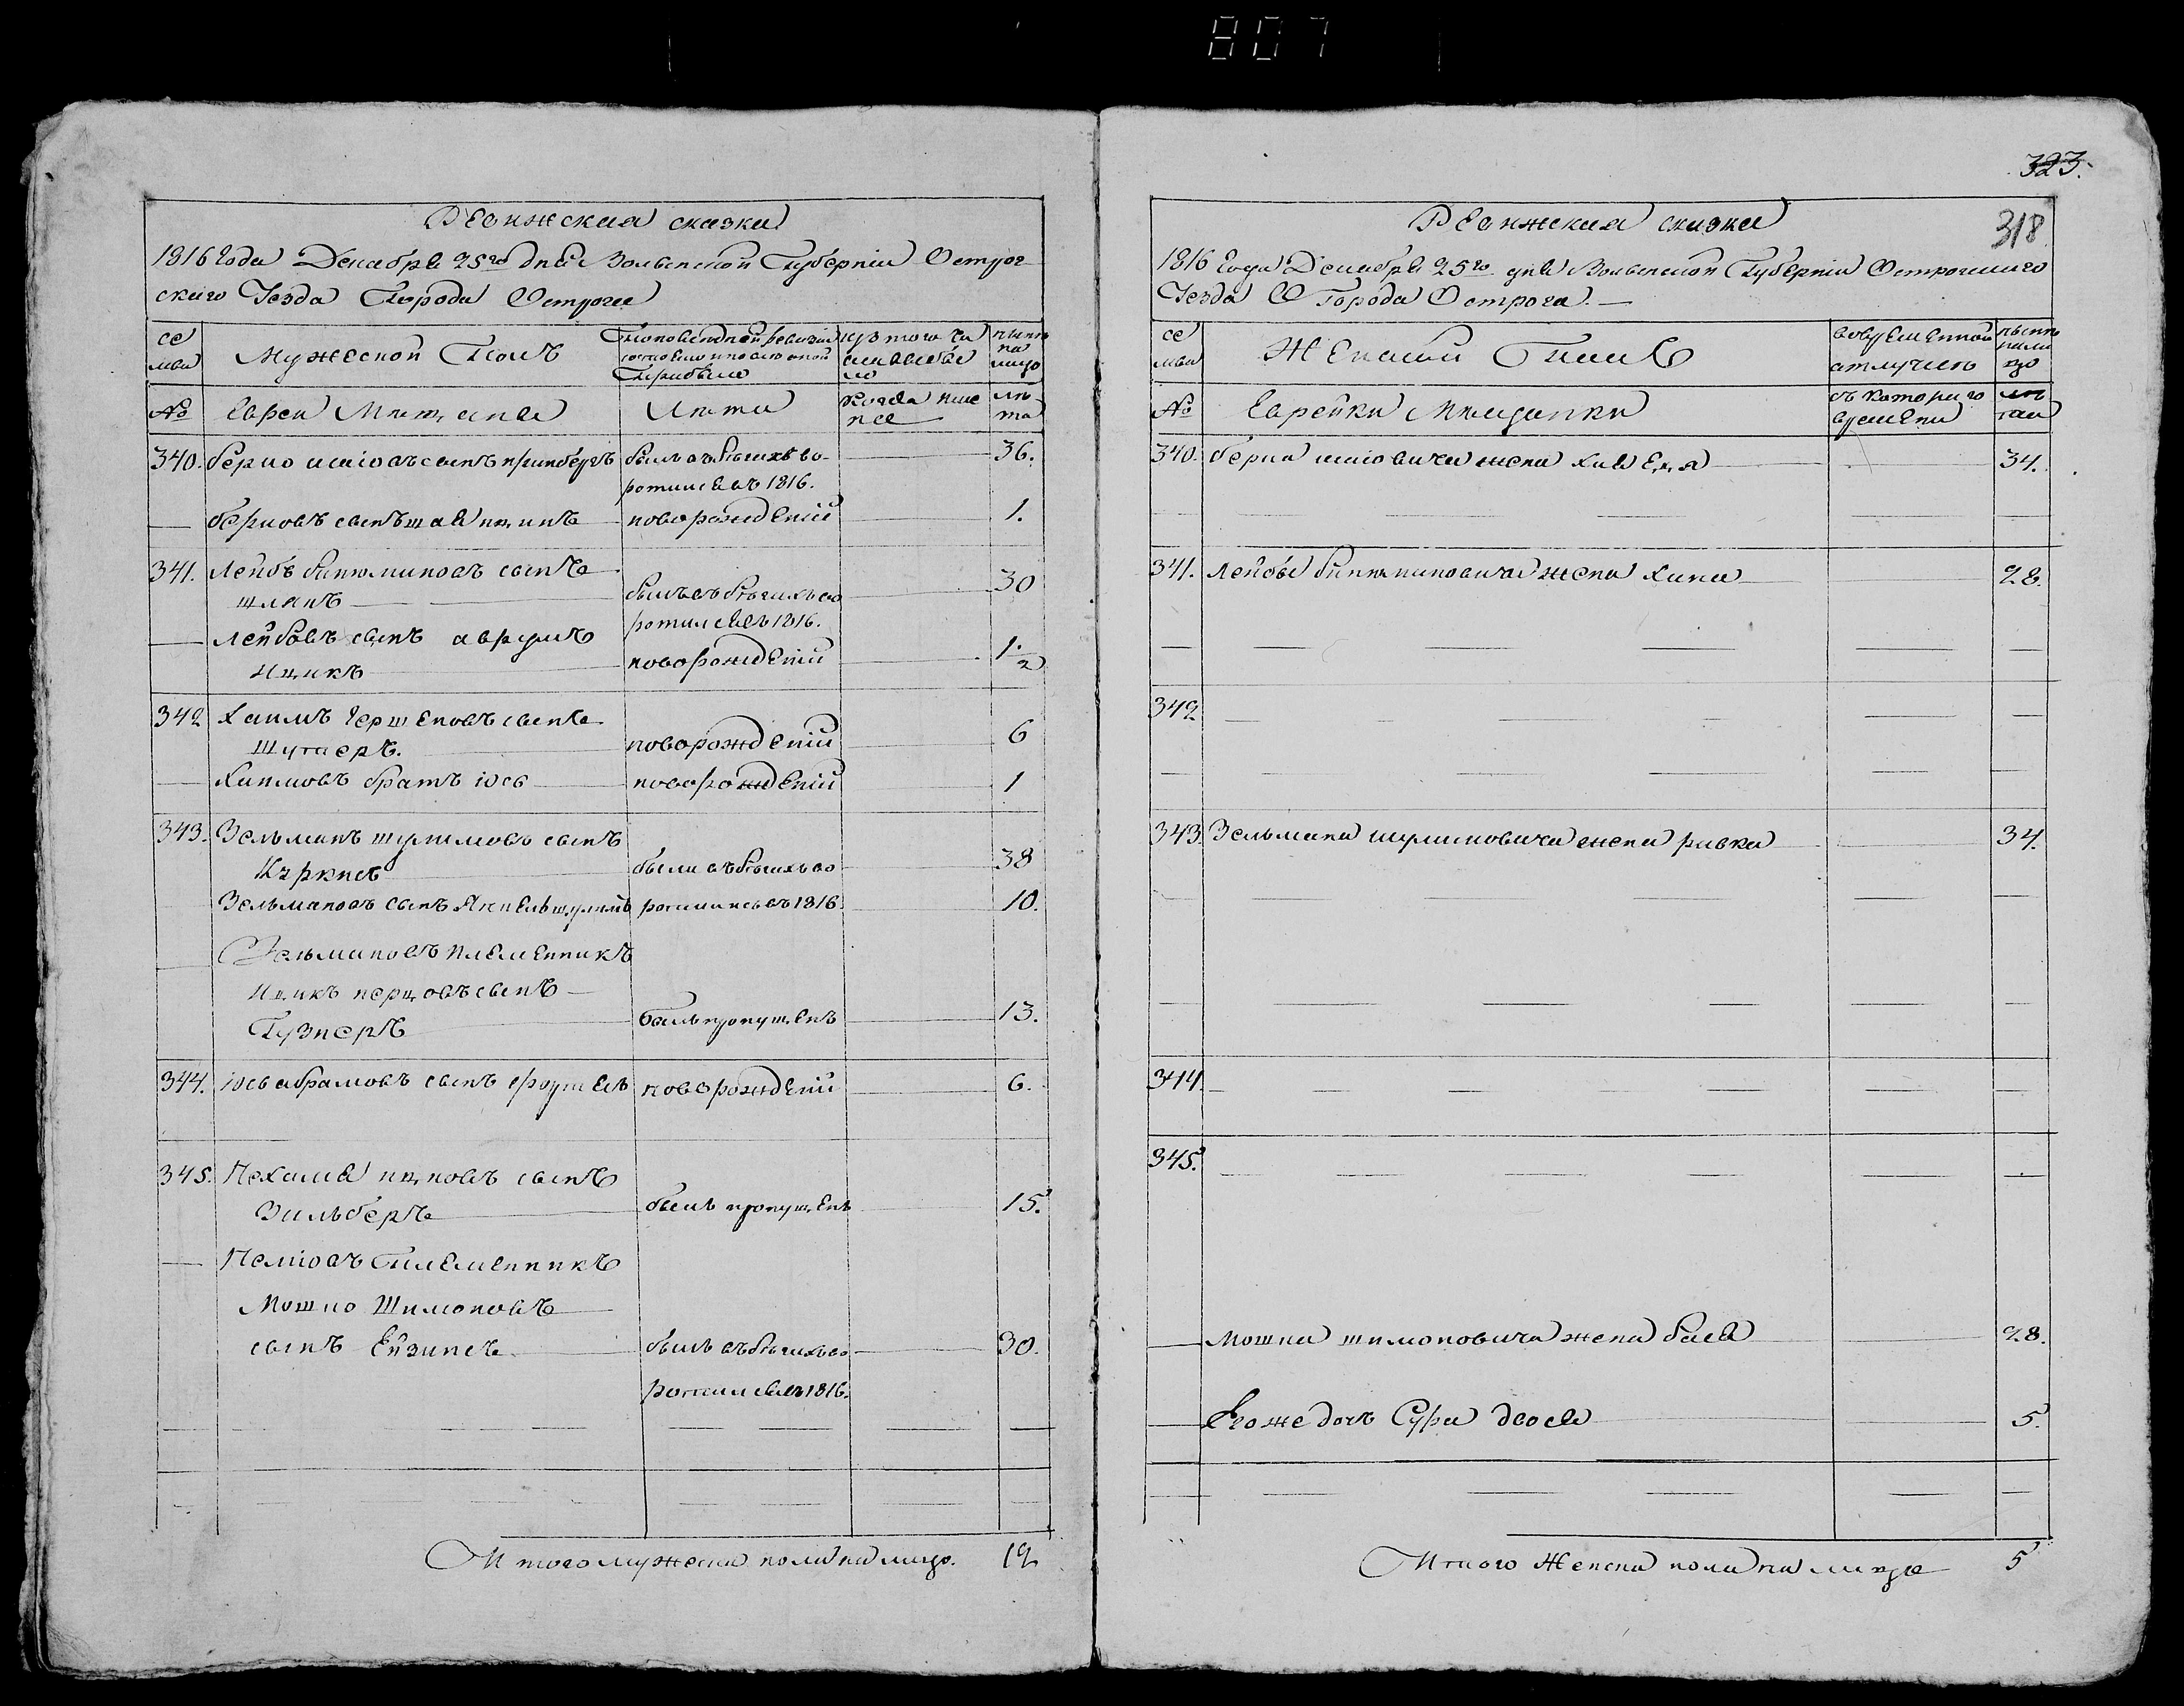 807
Ревижская сказка
1816 Года Декабря 25го дня Волынской Губернии Острог
скаго Уезда Города Острога
се
мьи
Мужеской Полъ
По последней ревизіи
состояло и после оной
Прибыло
изъ того чи
сла выбы
ло
нынѣ
на
лицо
№
Евреи Мѣщане
Лѣта
Когда име
нно
лѣ
та
340. берко исіовъ сынъ гринбергъ былъ въ бѣгахъ во- 36.
ротился въ 1816.
— берковъ сынъ шая ицикъ новорожденій 1.
341. Лейбъ бинюминовъ сынъ 30
шлякъ былъ въ бѣгахъ во
ротился въ 1816.
— лейбовъ сынъ аврумъ
Ицикъ новорожденій 1/2
342 Хаимъ Гершковъ сынъ
Шустеръ. новорожденій 6
— Хаимовъ братъ іось новорожденій 1
343. Зельманъ шулимовъ сынъ
были въ бѣгахъ во 38
Зельмановъ сынъ Янкель шулимъ ротились въ 1816 10.
— Зельмановъ племенникъ
Ицикъ перцовъ сынъ
былъ пропущенъ 13.
344. іось абрамовъ сынъ новорожденій 6.
345. Нехамя ицковъ сынъ
Зильберъ былъ пропущенъ 15.
— племенникъ
Мошко Шимоновъ
сынъ былъ въ бѣгахъ во 30.
ротился въ 1816.
Итого мужеска пола на лицо. 12
323.
318
Ревижская сказка
1816 Года Декабря 25го дня Волынской Губернии Острогскаго
Уезда Города Острога
се
мьи
Женской Полъ
во временной
отлучкѣ
нынѣ
нали
цо
№
Еврейки Мѣщанки
съ котораго
времени
лѣ
та
340. берка исіовича жена хая 34.
341. Лейбы бинюминовича жена хана 28.
342
343. Зельмана шулимовича жена ривка 34.
344.
345.
— Мошка шимоновича жена бася 28.
— Егоже дочь Сура двося 5.
Итого Женска пола на лицо 5